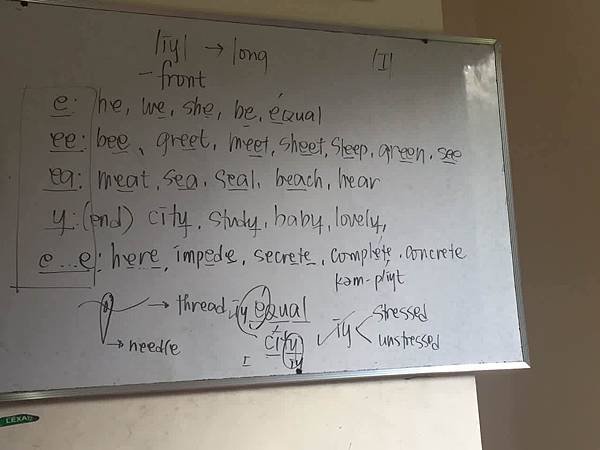 /īy/ → long /I/
- front
e: he, we, she, be, équal
ee: bee, greet, meet, sheet, sleep, green, see
ea: meat, sea, seal, beach, hear
y: (end) city, study, baby, lovely,
e...e: here, impede, secrete, complete, concrete
kəm-plīyt
→ thread īy équal ✓ īy stressed
→ needle city unstressed
I īy
LEXAN